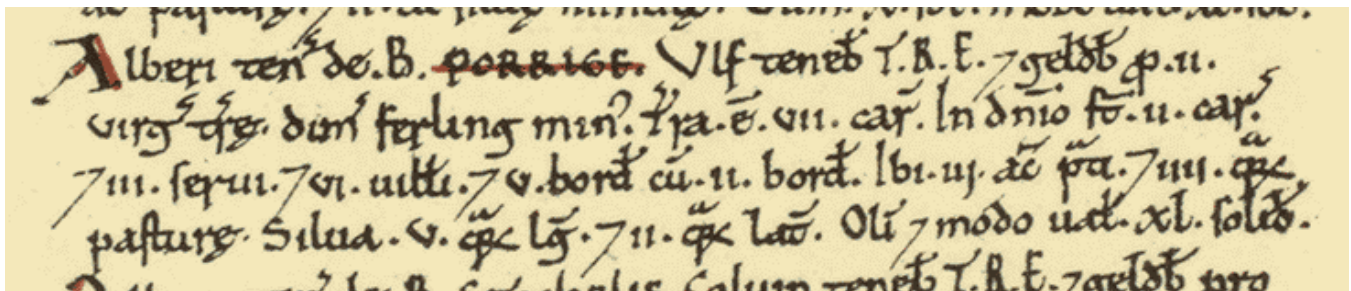 Alberi ten̄ de. B. PORRIGE. Vlf teneb̄ T. R. E. ⁊ geldb̄ p. ii.
virg̃ tr̃ę. dim̃ ferling min᷒. Tr̃a. ē. vii. car̃. In dn̄io st̄. ii. car̃.
⁊ iii. serui. ⁊ vi. uilli. ⁊ v. bord̄ cū. ii. bord̄. Ibi. iij. ac̃ p̃ti. ⁊ iiii. q̃ꝝ
pasturę. Silua. v. q̃ꝝ lḡ. ⁊ ii. q̃ꝝ lat̄. Oli᷒ ⁊ modo ual̄. xl. solid̄.
teneb̄ T. R. E. ⁊ geldb̄ pro